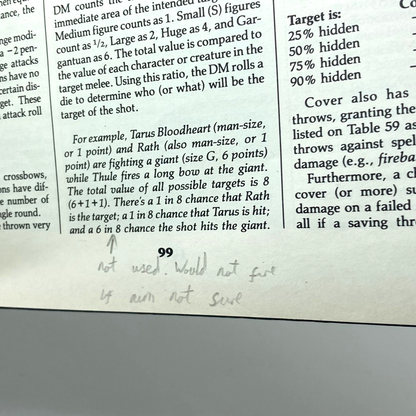 ance, the
nge modi-
a −2 pen-
ge attacks
ns have no
certain dis-
get. These
attack roll
crossbows,
ons have dif-
e number of
ngle round.
thrown very
DM counts the
immediate area of the intended
Medium figure counts as 1. Small (S) figures
count as 1/2, Large as 2, Huge as 4, and Gar-
gantuan as 6. The total value is compared to
the value of each character or creature in the
target melee. Using this ratio, the DM rolls a
die to determine who (or what) will be the
target of the shot.
For example, Tarus Bloodheart (man-size,
or 1 point) and Rath (also man-size, or 1
point) are fighting a giant (size G, 6 points)
while Thule fires a long bow at the giant.
The total value of all possible targets is 8
(6+1+1). There's a 1 in 8 chance that Rath
is the target; a 1 in 8 chance that Tarus is hit;
and a 6 in 8 chance the shot hits the giant.
Target is:
25% hidden
50% hidden
75% hidden
90% hidden
Cover also has
throws, granting the
listed on Table 59 as
throws against spel
damage (e.g., fireba
Furthermore, a ch
cover (or more) su
damage on a failed
all if a saving thr
99
not used. Would not fire
if aim not sure